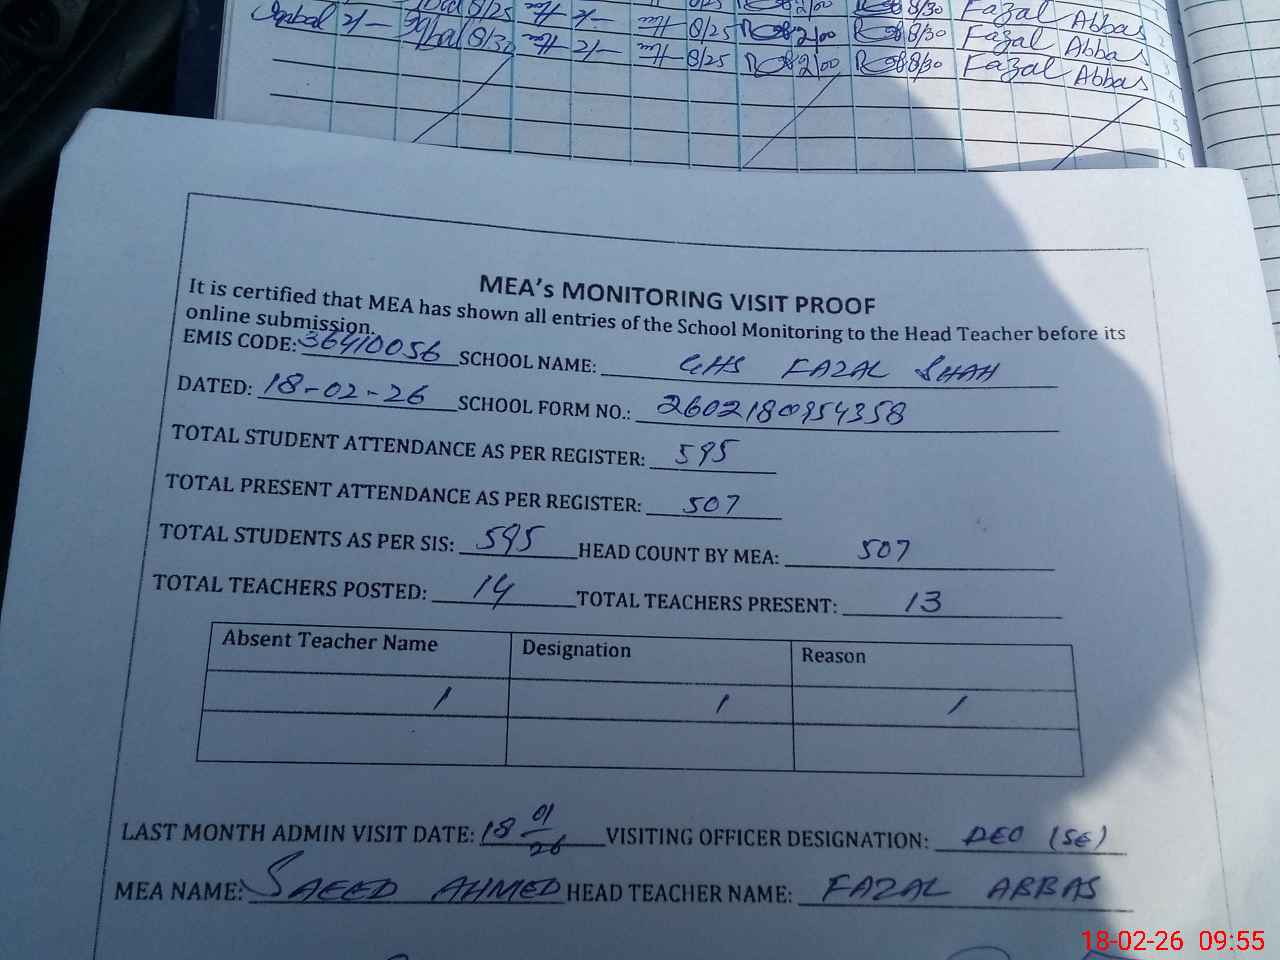 Iqbal 2/- Iqbal 8/30 2/- 8/25 2/00 8/30 Fazal Abbas
8/25 2/00 8/30 Fazal Abbas
MEA's MONITORING VISIT PROOF
It is certified that MEA has shown all entries of the School Monitoring to the Head Teacher before its
online submission.
EMIS CODE: 36410056 SCHOOL NAME: GHS FAZAL SHAH
DATED: 18-02-26 SCHOOL FORM NO.: 2602180954358
TOTAL STUDENT ATTENDANCE AS PER REGISTER: 595
TOTAL PRESENT ATTENDANCE AS PER REGISTER: 507
TOTAL STUDENTS AS PER SIS: 595 HEAD COUNT BY MEA: 507
TOTAL TEACHERS POSTED: 14 TOTAL TEACHERS PRESENT: 13
Absent Teacher Name Designation Reason
/ / /
LAST MONTH ADMIN VISIT DATE: 18 01/26 VISITING OFFICER DESIGNATION: DEO (SE)
MEA NAME: SAEED AHMED HEAD TEACHER NAME: FAZAL ABBAS
18-02-26 09:55